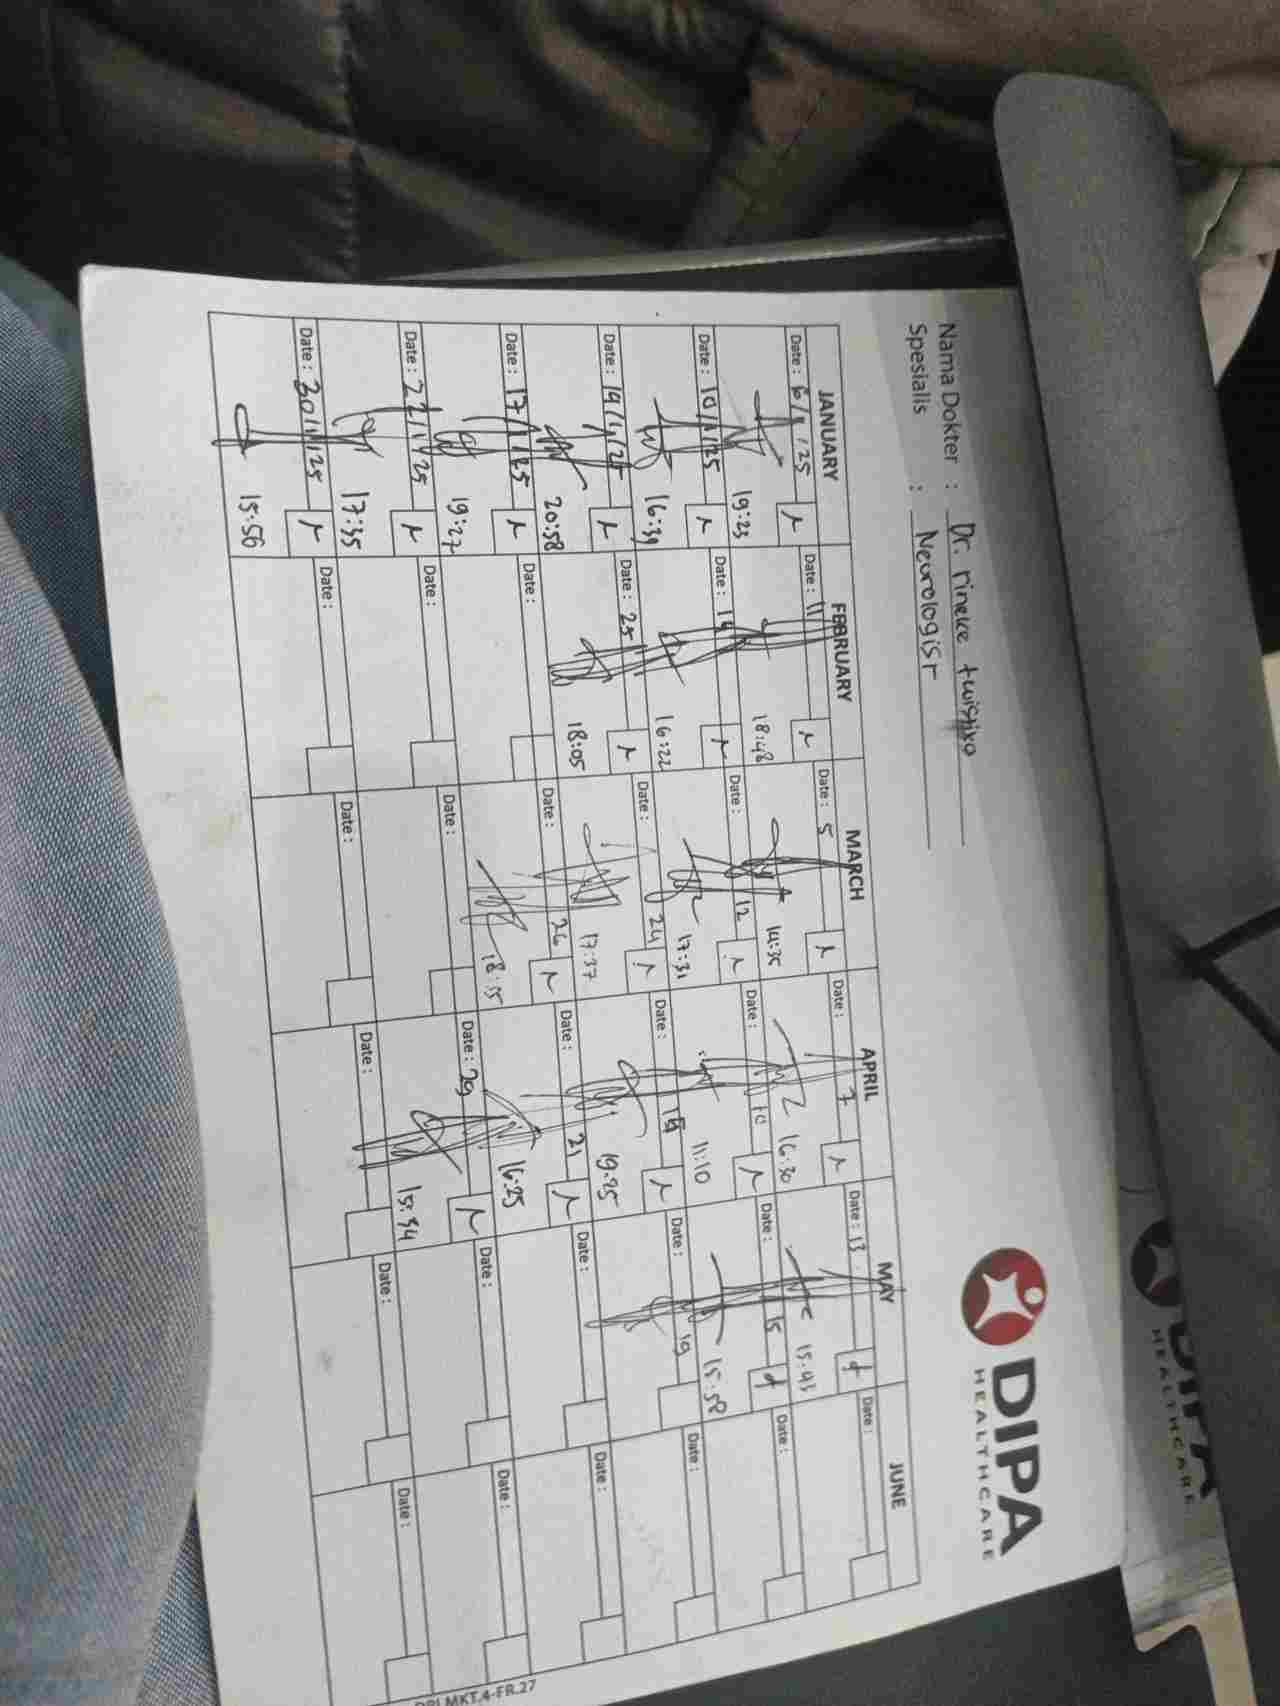 DIPA
HEALTHCARE
DIPA
HEALTHCARE
Nama Dokter : Dr. rineke twistixa
Spesialis : Neurologist
JANUARY FEBRUARY MARCH APRIL MAY JUNE
Date : 6/1/25 Date : 11 Date : 5 Date : 7 Date : 13 Date :
19:23 18:48 14:35 16:30 15:43
Date : 10/1/25 Date : 14 Date : 12 Date : 10 Date : 15 Date :
16:39 16:22 17:31 11:10 15:58
Date : 14/1/25 Date : 25 Date : 24 Date : 15 Date : 19 Date :
20:58 18:05 17:37 19.25
Date : 17/1/25 Date : Date : 26 Date : 21 Date : Date :
19:27 18:55 16:25
Date : 22/1/25 Date : Date : Date : 29 Date : Date :
17:35 15:34
Date : 30/1/25 Date : Date : Date : Date : Date :
15:56
MKT.4-FR.27